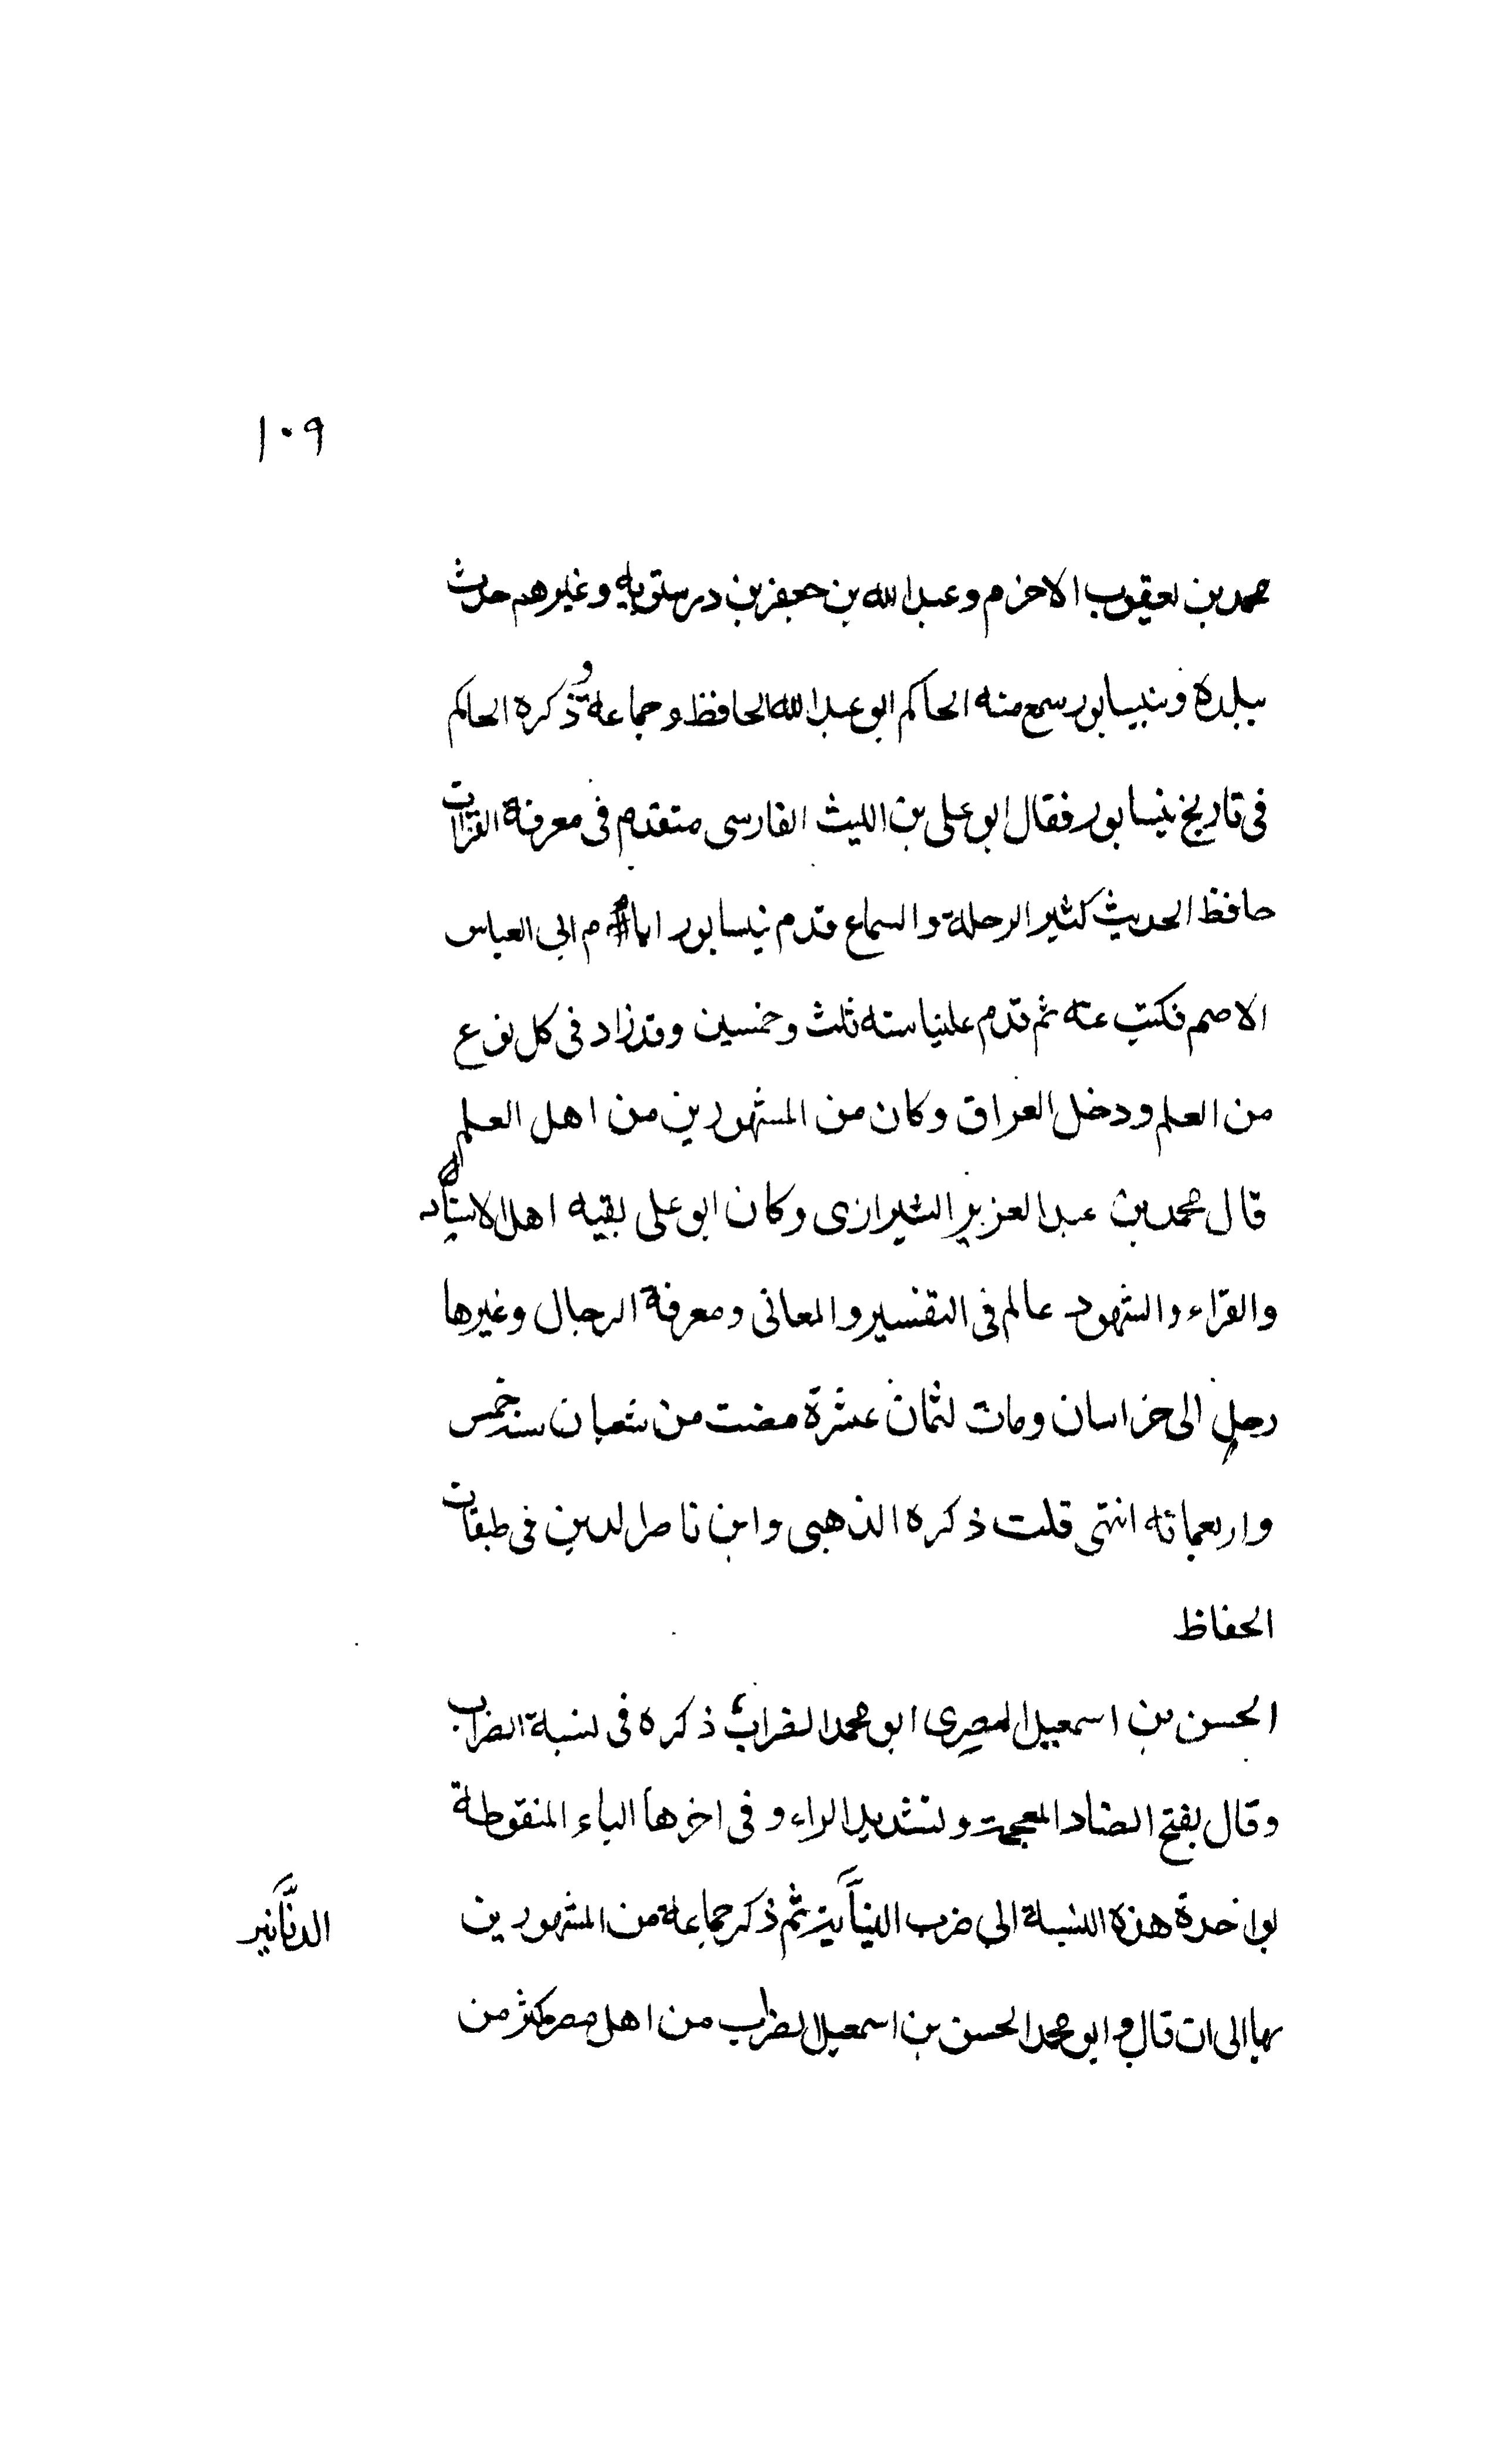 ١٠٩
محمد بن يعقوب الاخرم وعبد الله بن جعفر بن درستويه وغيرهم حدث
ببلده وبنيسابور سمع منه الحاكم ابو عبد الله الحافظ وجماعة و ذكره الحاكم
فى تاريخ نيسابور فقال ابو على بن الليث الفارسى متقدم فى معرفة القرآت
حافظ الحديث كثير الرحلة والسماع قدم نيسابور ايام ابى العباس
الاصم فكتب عنه ثم قدم علينا سنه ثلث وخمسين وقد زاد فى كل نوع
من العلم ودخل العراق وكان من المشهورين من اهل العلم
قال محمد بن عبد العزيز الشيرازى وكان ابو على بقيه اهل الاسناد
والقرّاء والشهود عالم فى التفسير والمعانى ومعرفة الرجال وغيرها
رحل الى خراسان ومات لثمان عشرة مضت من شعبان سنة خمس
واربعمائه انتهى قلت ذكره الذهبى وابن ناصر الدين فى طبقات
الحفاظ
الحسن بن اسمعيل المصرى ابو محمد الضراب ذكره فى نسبة الضراب
وقال بفتح الضاد المعجمة وتشديد الراء و فى اخرها الباء المنقوطة
بواحدة هذه النسبة الى ضرب ثم ذكر جماعة من المشهورين
الدنّانير
بها الى ان قال و ابو محمد الحسن بن اسمعيل الضراب من اهل مصر مكثر من